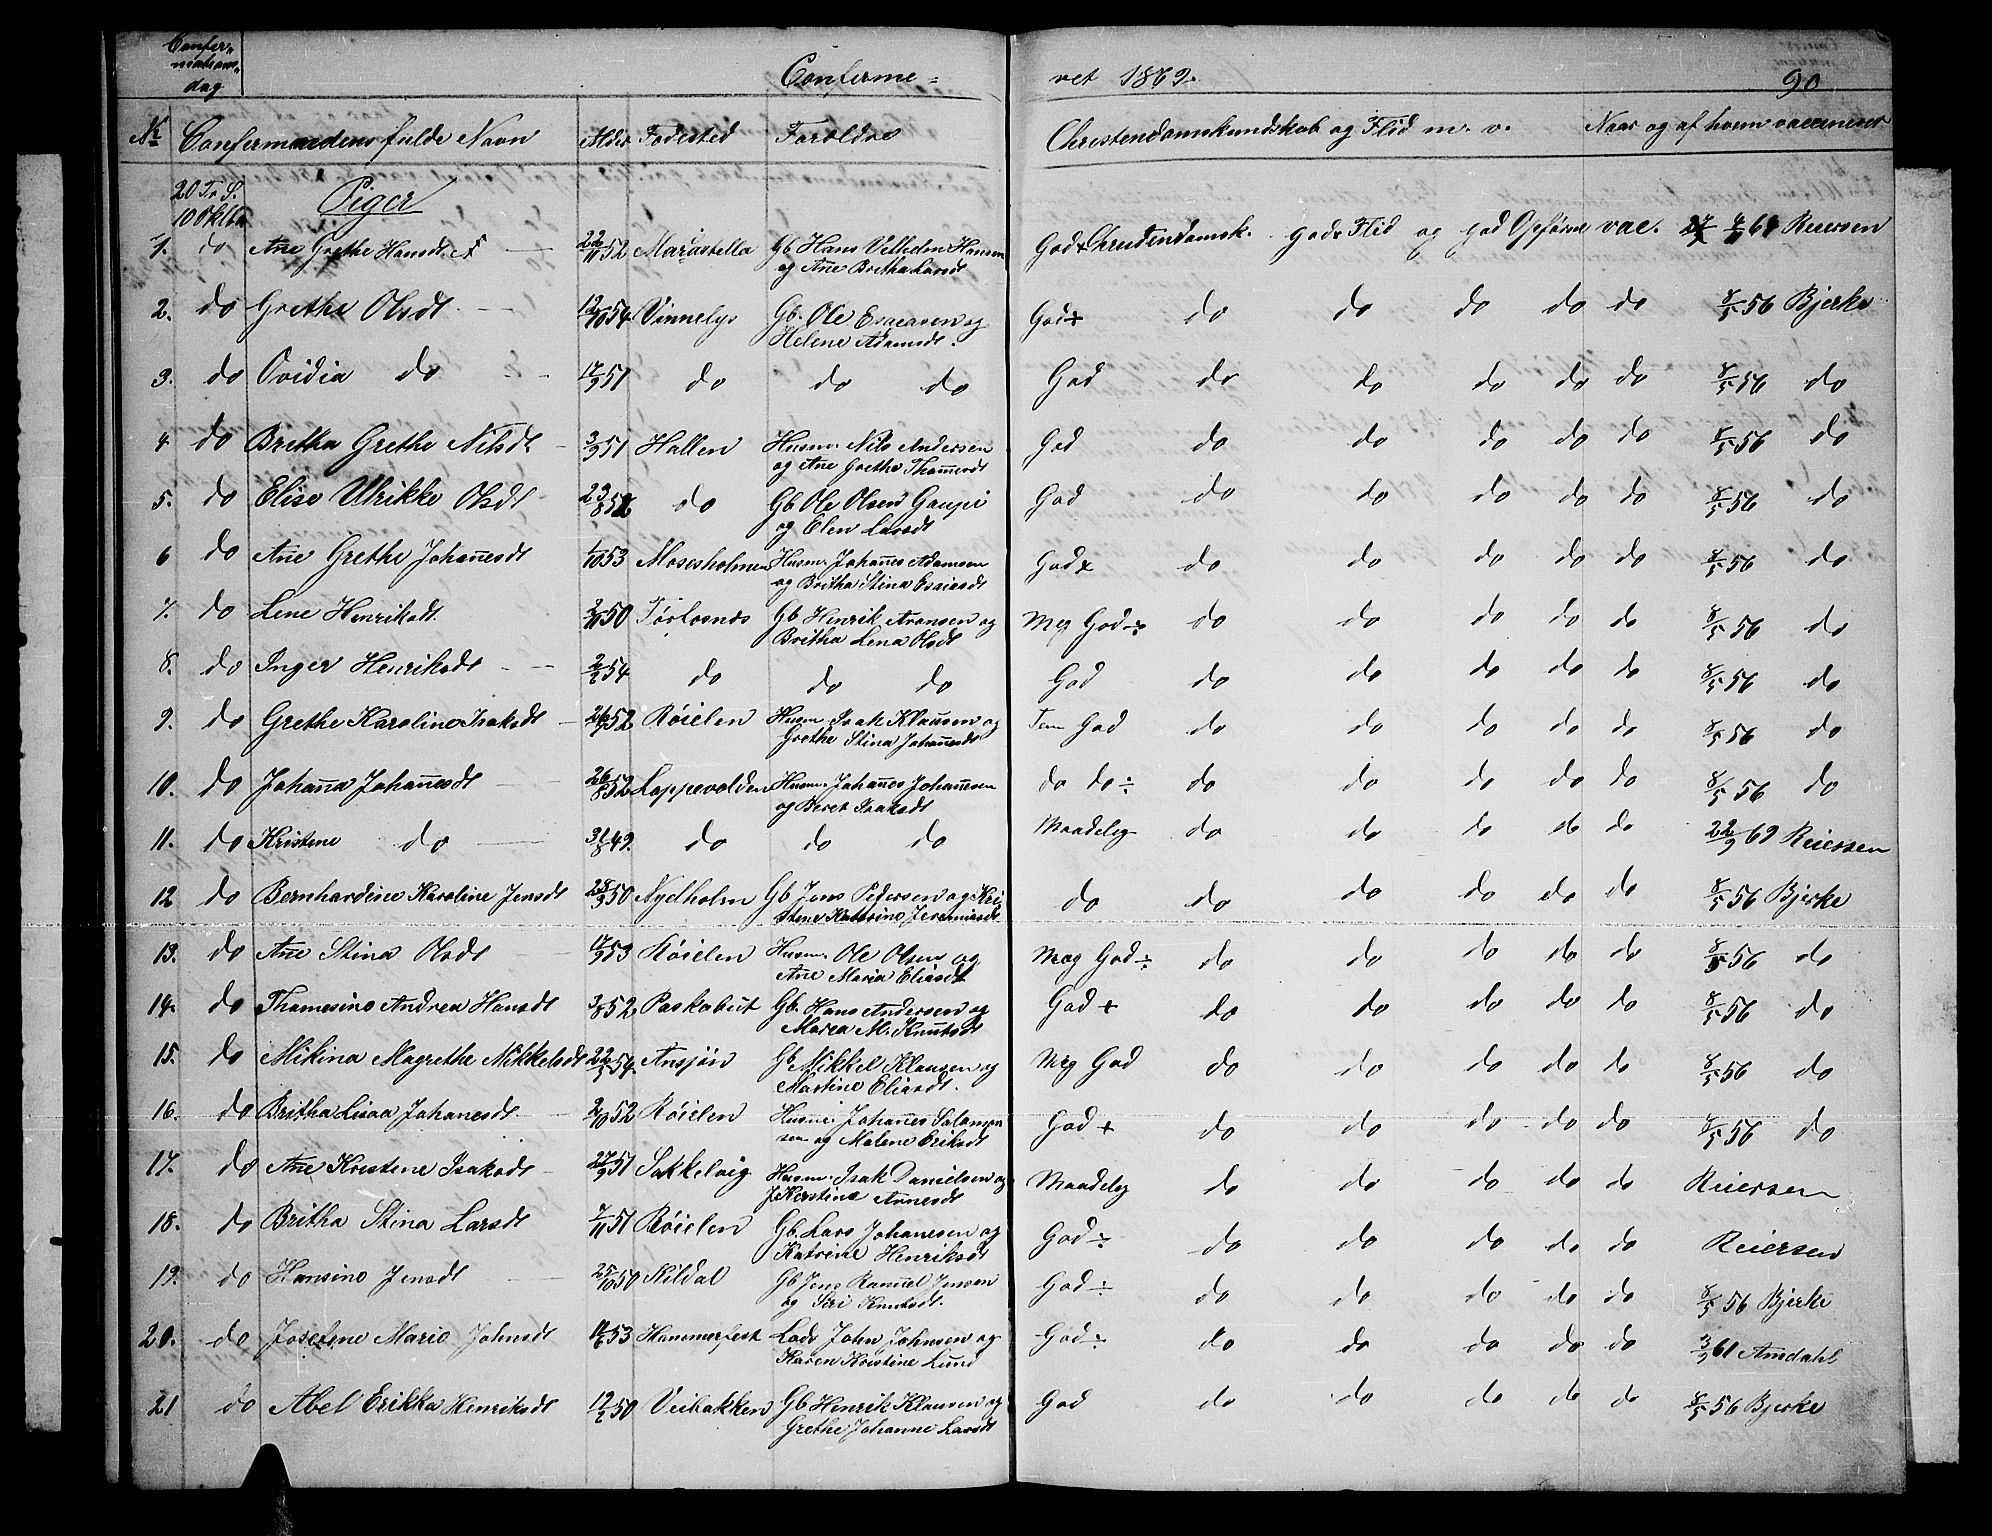 Confer=
mations=
dag
Conferme=
ret 1869.
90
No Confermandens fulde Navn Alder Fødested Foreldre Christendomskundskab og Flid m. v. Naar og af hvem vaccineret
20 Tr. S.
10 Oktbr
Piger
1. do Ane Grethe Hansdt. 22/11 52 Marastella Gb Hans Velhelm Hansen God Christendomsk. god Flid og god Opførsel vac. 69 Reiersen
og Ane Britha Larsdt
2. do Grethe Olsdt 12/10 54 Vinnelys Gb. Ole Esaiasen og God+ do do do do do 8/5 56 Bjerke
Helene Adamsdt.
3. do Ovidia do 17/9 51 do do do God do do do do do 8/5 56 do
4 do Britha Grethe Nilsdt 3/9 51 Hallen Husm. Nils Andersen God do do do do do 8/5 56 do
og Ane Grethe Thomesdt
5. do Elise Ulrikke Olsdt 23/8 52 do Gb Ole Olsen Gaupi God do do do do do 8/5 56 do
og Elen Larsdt
6 do Ane Grethe Johanesdt 1/10 53 Mosesholmen Husm. Johanes Adamsen God+ do do do do do 8/5 56 do
og Britha Stina Esaiasdt
7. do Lene Henriksdt. 50 Tørfosnes Gb Henrik Aronsen og Meg God÷ do do do do do 8/5 56 do
Britha Lena Olsdt
8. do Inger Henriksdt 54 do do do God do do do do do 8/5 56 do
9. do Grethe Karoline Isaksdt 52 Røielen Husm Isak Klausen og Tem God do do do do do 8/5 56 do
Grethe Stina Johanesdt
10. do Johana Johanesdt 26/8 52 Loppevolden Husm. Johanes Johanesen do do÷ do do do do do 8/5 56 do
og Beret Isaksdt
11. do Kristene do 31/8 49. do do do Maadelig do do do do do 22/9 69 Reiersen
12 do Bernhardine Karoline Jensdt 28/9 50 Nydholm Gb Jens Pedersen og Kri- do do do do do do 8/5 56 Bjerke
stene Kattrine Jeremiasdt
13. do Ane Stina Olsdt 17/9 53 Røielen Husm. Ole Olsen og Meg God÷ do do do do do 8/5 56 do
Ane Maria Eliasdt
14. do Thomesine Andrea Hansdt 3/8 52. Paskabut Gb. Hans Andersen og God+ do do do do do 8/5 56 do
Marea M. Knutsdt
15. do Mikina Magrethe Mikkelsdt 22/5 54. Ansjøn Gb Mikkel Klausen og Meg God do do do do do 8/5 56 do
Martine Eliasdt.
16. do Britha Lisaa Johanesdt 2/10 52 Røielen Husm. Johanes Salamon- God+ do do do do do 8/5 56 do
sen og Malene Eriksdt
17. do Ane Kristene Isaksdt 27/9 51 Sakkelvig Husm. Isak Danielsen og Maadelig do do do do do Reiersen
Kerstina Arnesdt
18. do Britha Stina Larsdt 7/11 51 Røielen Gb. Lars Johanesen og God÷ do do do do do Reiersen
Katrine Henriksdt
19. do Hansine Jensdt 25/10 50 Kildal Gb Jens Ramel Jensen God÷ do do do do do 8/5 56 Bjerke
og Siri Knutsdt.
20. do Josefene Marie Johnsdt 53 Hammerfest Lods John Johnsen og God÷ do do do do do 3/9 61 Amdahl
Karen Kristine Lund
21 do Abel Erikka Henriksdt 50 Veibakken Gb Henrik Klausen og God do do do do do 8/5 56 Bjerke
Grethe Johanne Larsdt